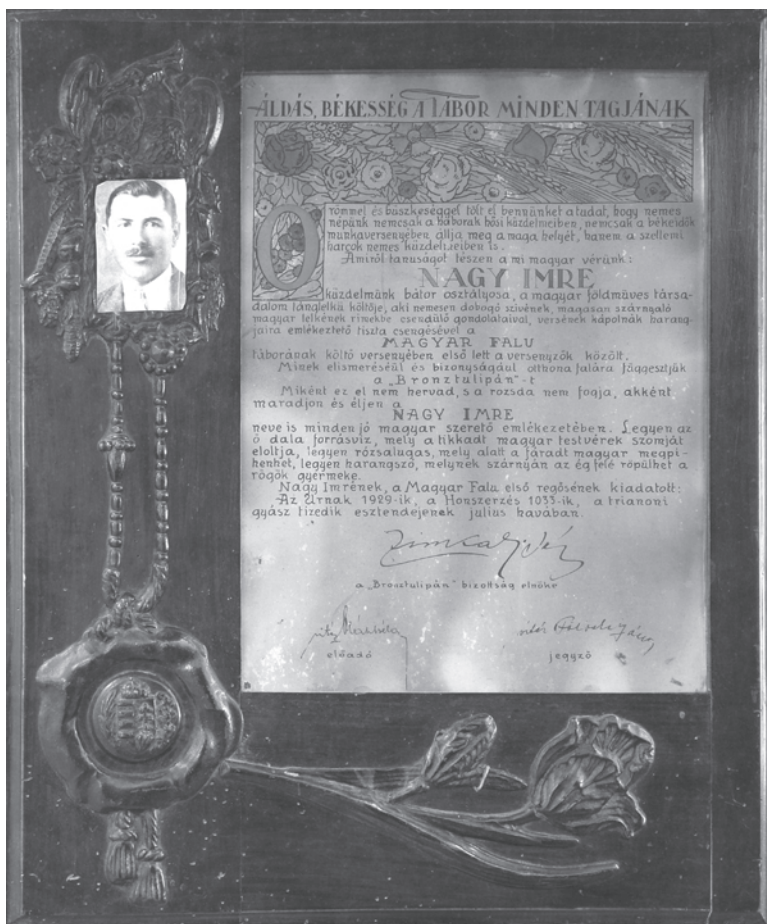 ÁLDÁS, BÉKESSÉG A TÁBOR MINDEN TAGJÁNAK
Örömmel és büszkeséggel tölt el bennünket a tudat, hogy nemes
népünk nemcsak a háborúk hősi küzdelmeiben, nemcsak a békeidők
munkaversenyében állja meg a maga helyét, hanem a szellemi
harcok nemes küzdelmeiben is.
Amiről tanuságot tészen a mi magyar vérünk:
NAGY IMRE
küzdelmünk bátor osztályosa, a magyar földmüves társa-
dalom lánglelkü költője, aki nemesen dobogó szivének, magasan szárnyaló
magyar lelkének rimekbe csendülő gondolataival, versének kápolnák harang-
jaira emlékeztető tiszta csengésével a
MAGYAR FALU
táborának költő versenyében első lett a versenyzők között.
Minek elismeréséül és bizonyságául otthona falára függesztjük
a „Bronztulipán"-t
Miként ez el nem hervad, s a rozsda nem fogja, akként
maradjon és éljen a
NAGY IMRE
neve is minden jó magyar szerető emlékezetében. Legyen az
ő dala forrásviz, mely a tikkadt magyar testvérek szomját
eloltja, legyen rózsalugas, mely alatt a fáradt magyar megpi-
henhet, legyen harangszó, melynek szárnyán az ég felé röpülhet a
rögök gyermeke.
Nagy Imrének, a Magyar Falu első regősének kiadatott:
Az Úrnak 1929-ik, a Honszerzés 1033-ik, a trianoni
gyász tizedik esztendejének julius havában.
a „Bronztulipán" bizottság elnöke
vitéz
előadó
jegyző